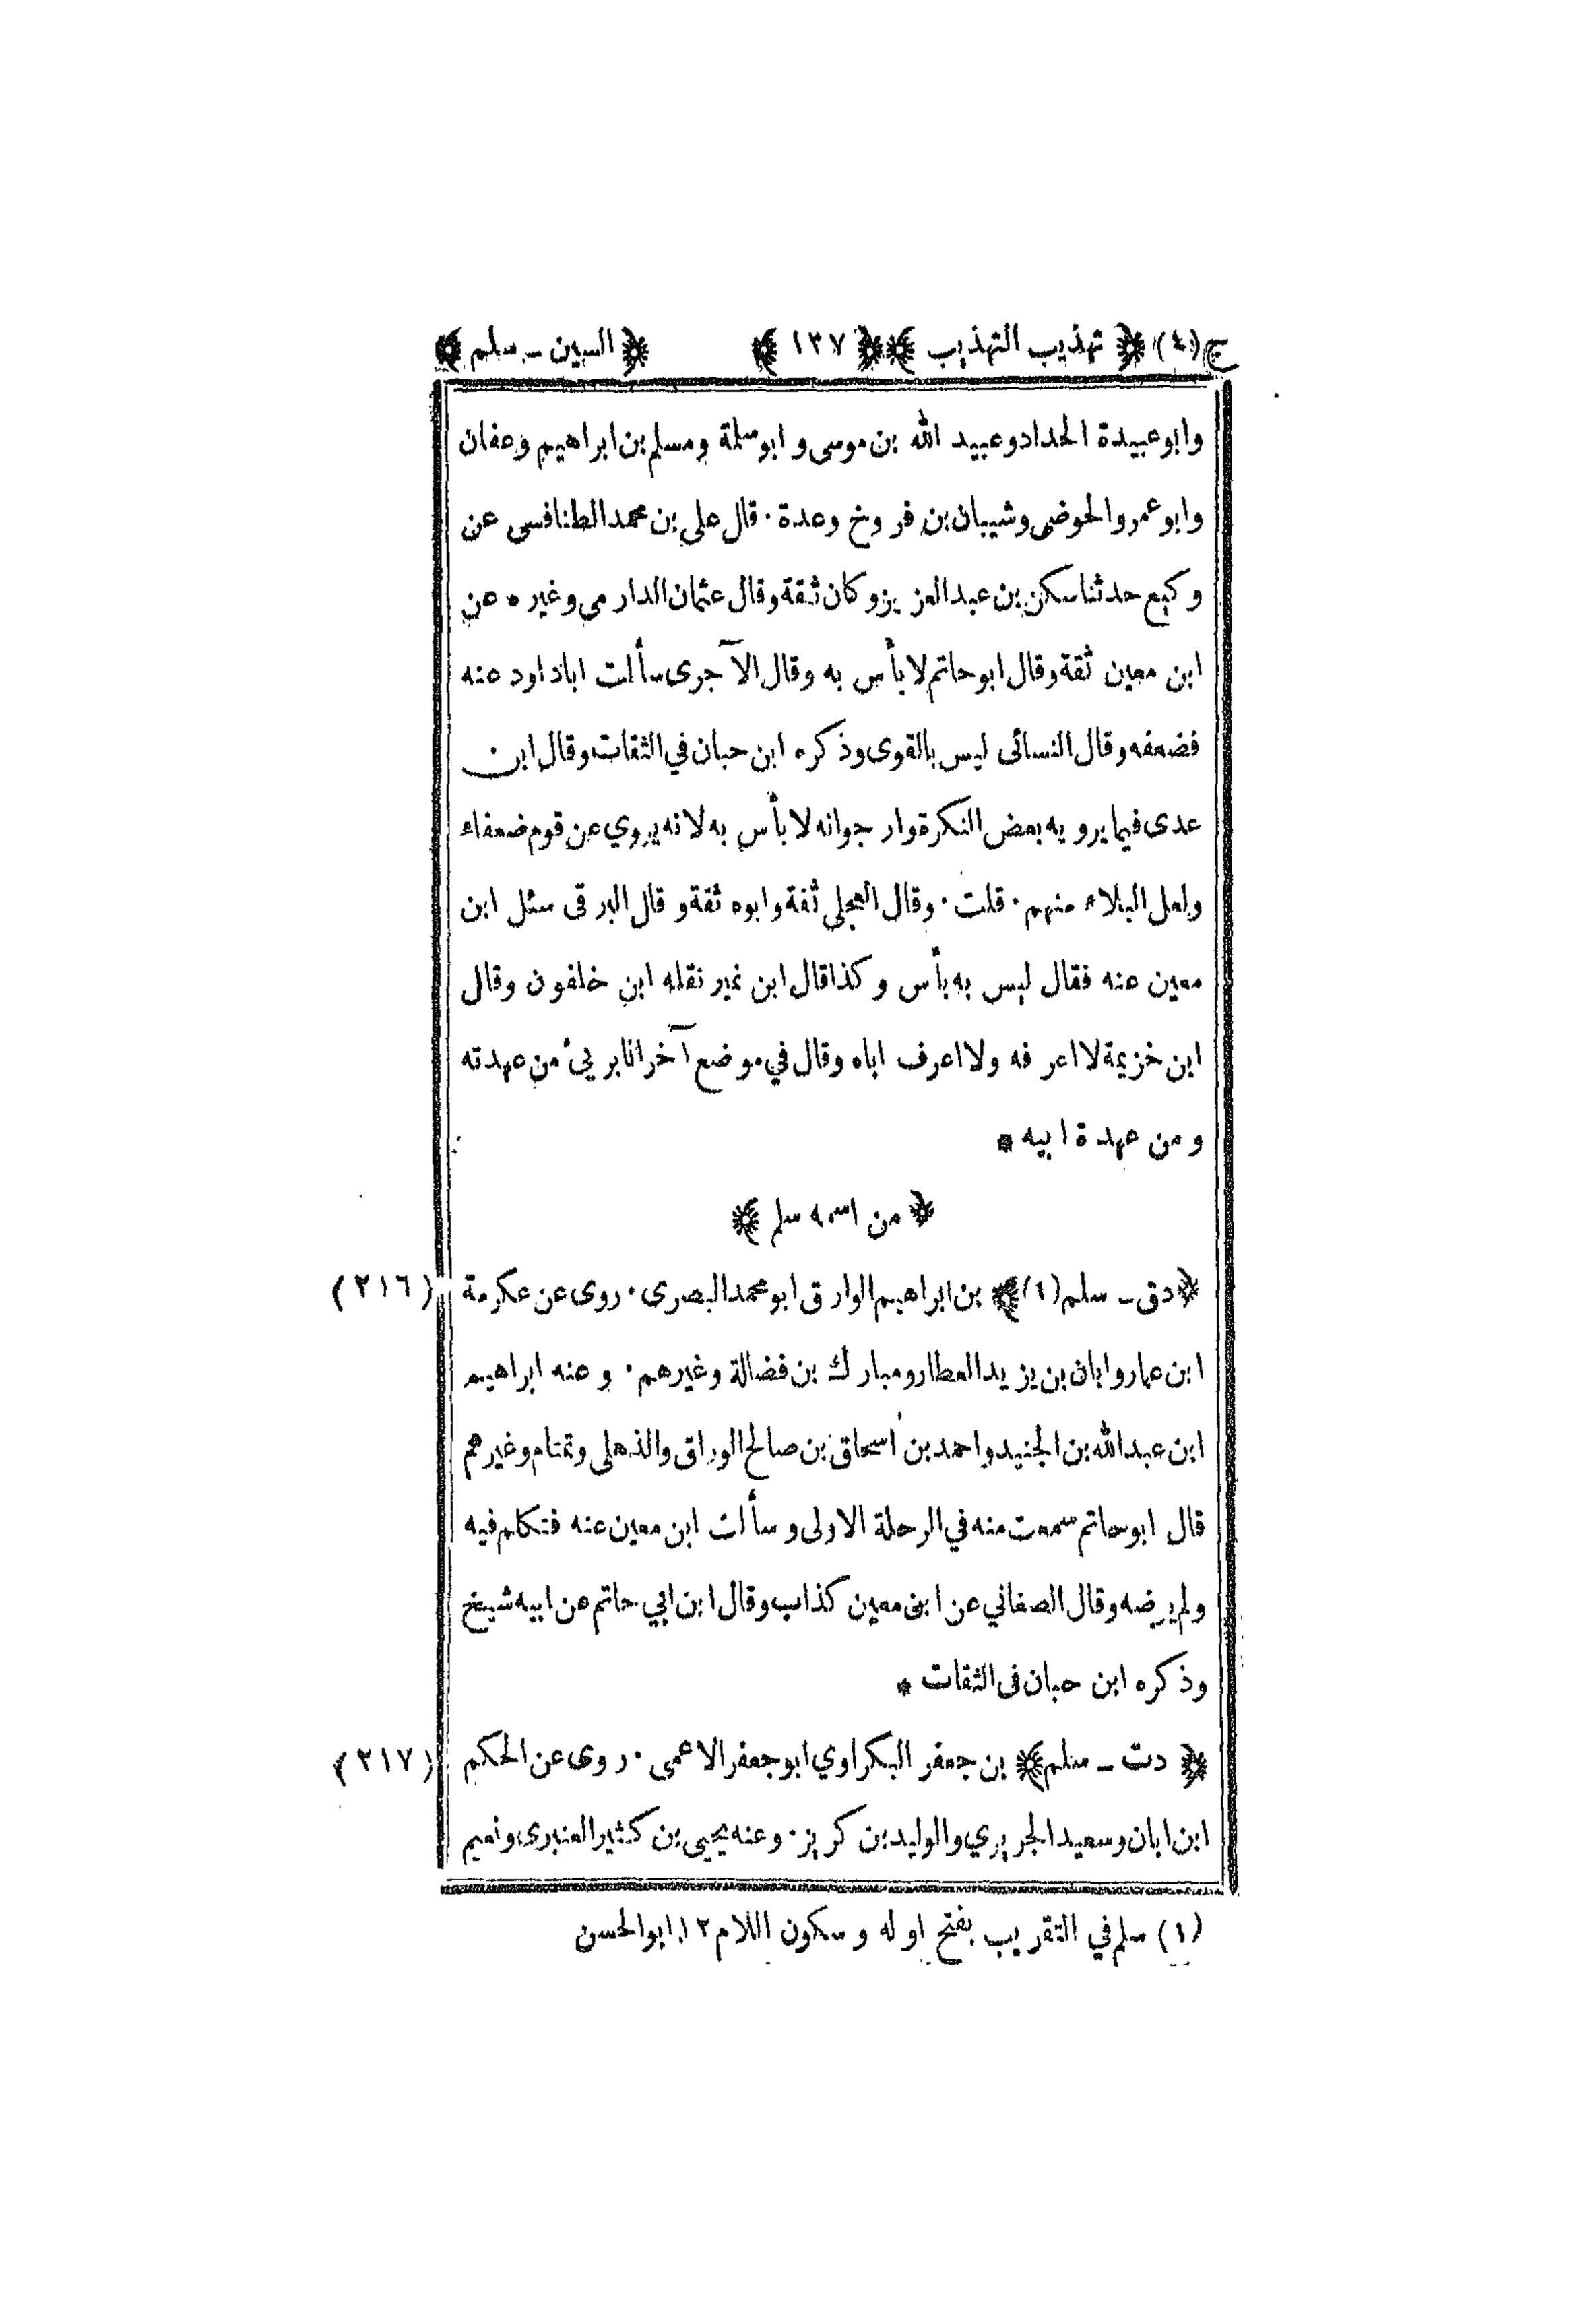 ج(٤) ﴿ تهذيب التهذيب ﴾ ﴿ ١٢٧ ﴾ ﴿ السين ـ سلم ﴾
وابوعبيدة الحداد وعبيد الله بن موسى وابوسلمة ومسلم بن ابراهيم وعفان
وابوعمرو الحوضى وشيبان بن فروخ وعدة . قال على بن محمد الطنافسى عن
وكيع حدثنا سكن بن عبد العزيز وكان ثقة وقال عثمان الدارمى وغيره عن
ابن معين ثقة وقال ابوحاتم لا بأس به وقال الآجرى سألت اباداود عنه
فضعفه وقال النسائى ليس بالقوى وذكره ابن حبان في الثقات وقال ابن
عدى فيما يرويه بعض النكرة وارجو انه لا بأس به لانه يروي عن قوم ضعفاء
ولعل البلاء منهم . قلت . وقال العجلى ثقة وابوه ثقة وقال البرقى سئل ابن
معين عنه فقال ليس به بأس وكذا قال ابن نمير نقله ابن خلفون وقال
ابن خزيمة لا اعرفه ولا اعرف اباه وقال في موضع آخر انا بريئ من عهدته
ومن عهدة ابيه *
﴿ من اسمه سلم ﴾
﴿ دق ـ سلم (١) ﴾ بن ابراهيم الوارق ابومحمد البصرى . روى عن عكرمة (٢١٦)
ابن عمار وابان بن يزيد العطار ومبارك بن فضالة وغيرهم . وعنه ابراهيم
ابن عبدالله بن الجنيد واحمد بن اسحاق بن صالح الوراق والذهلى وتمتام وغيرهم
قال ابوحاتم سمعت منه في الرحلة الاولى وسألت ابن معين عنه فتكلم فيه
ولم يرضه وقال الصغاني عن ابن معين كذاب وقال ابن ابي حاتم عن ابيه شيخ
وذكره ابن حبان فى الثقات *
﴿ دت ـ سلم ﴾ بن جعفر البكراوي ابوجعفر الاعمى . روى عن الحكم (٢١٧)
ابن ابان وسعيد الجريري والوليد بن كريز . وعنه يحيى بن كثير العنبرى ونعيم
(١) سلم في التقريب بفتح اوله وسكون اللام ١٢ ابوالحسن